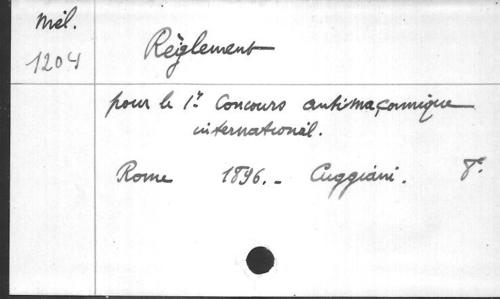 Mél.
1204
Règlement
pour le 1er Concours antimaçonnique
international.
Rome 1896. - Cuggiani. 8°.